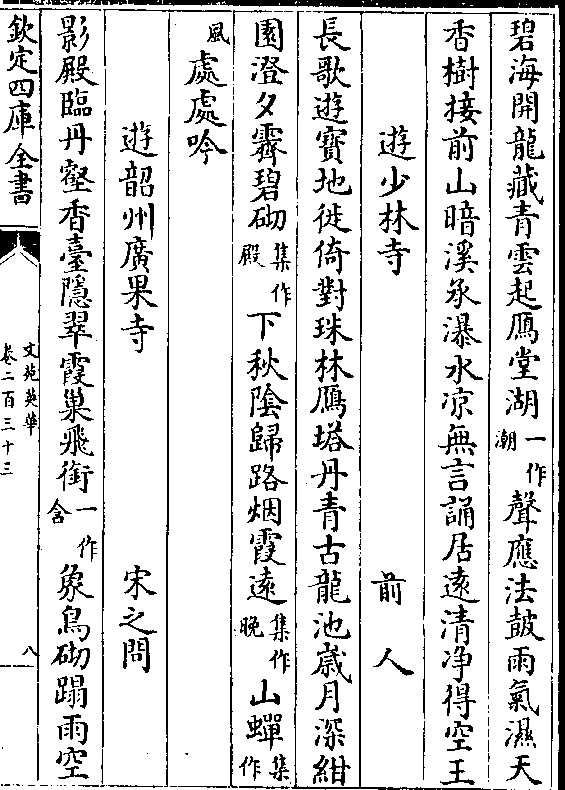 碧海開龍藏青雲起鴈堂湖一作潮聲應法皷雨氣濕天
香樹接前山暗溪承瀑水凉無言誦居逺清净得空王
遊少林寺 前人
長歌遊寳地徙倚對珠林鴈塔丹青古龍池嵗月深紺
園澄夕霽碧砌集作殿下秋陰歸路烟霞逺集作晚山蟬集作
風處處吟
遊韶州廣果寺 宋之問
影殿臨丹壑香臺隱翠霞巢飛銜一作含象鳥砌蹋雨空
欽定四庫全書 文苑英華 卷二百三十三 八